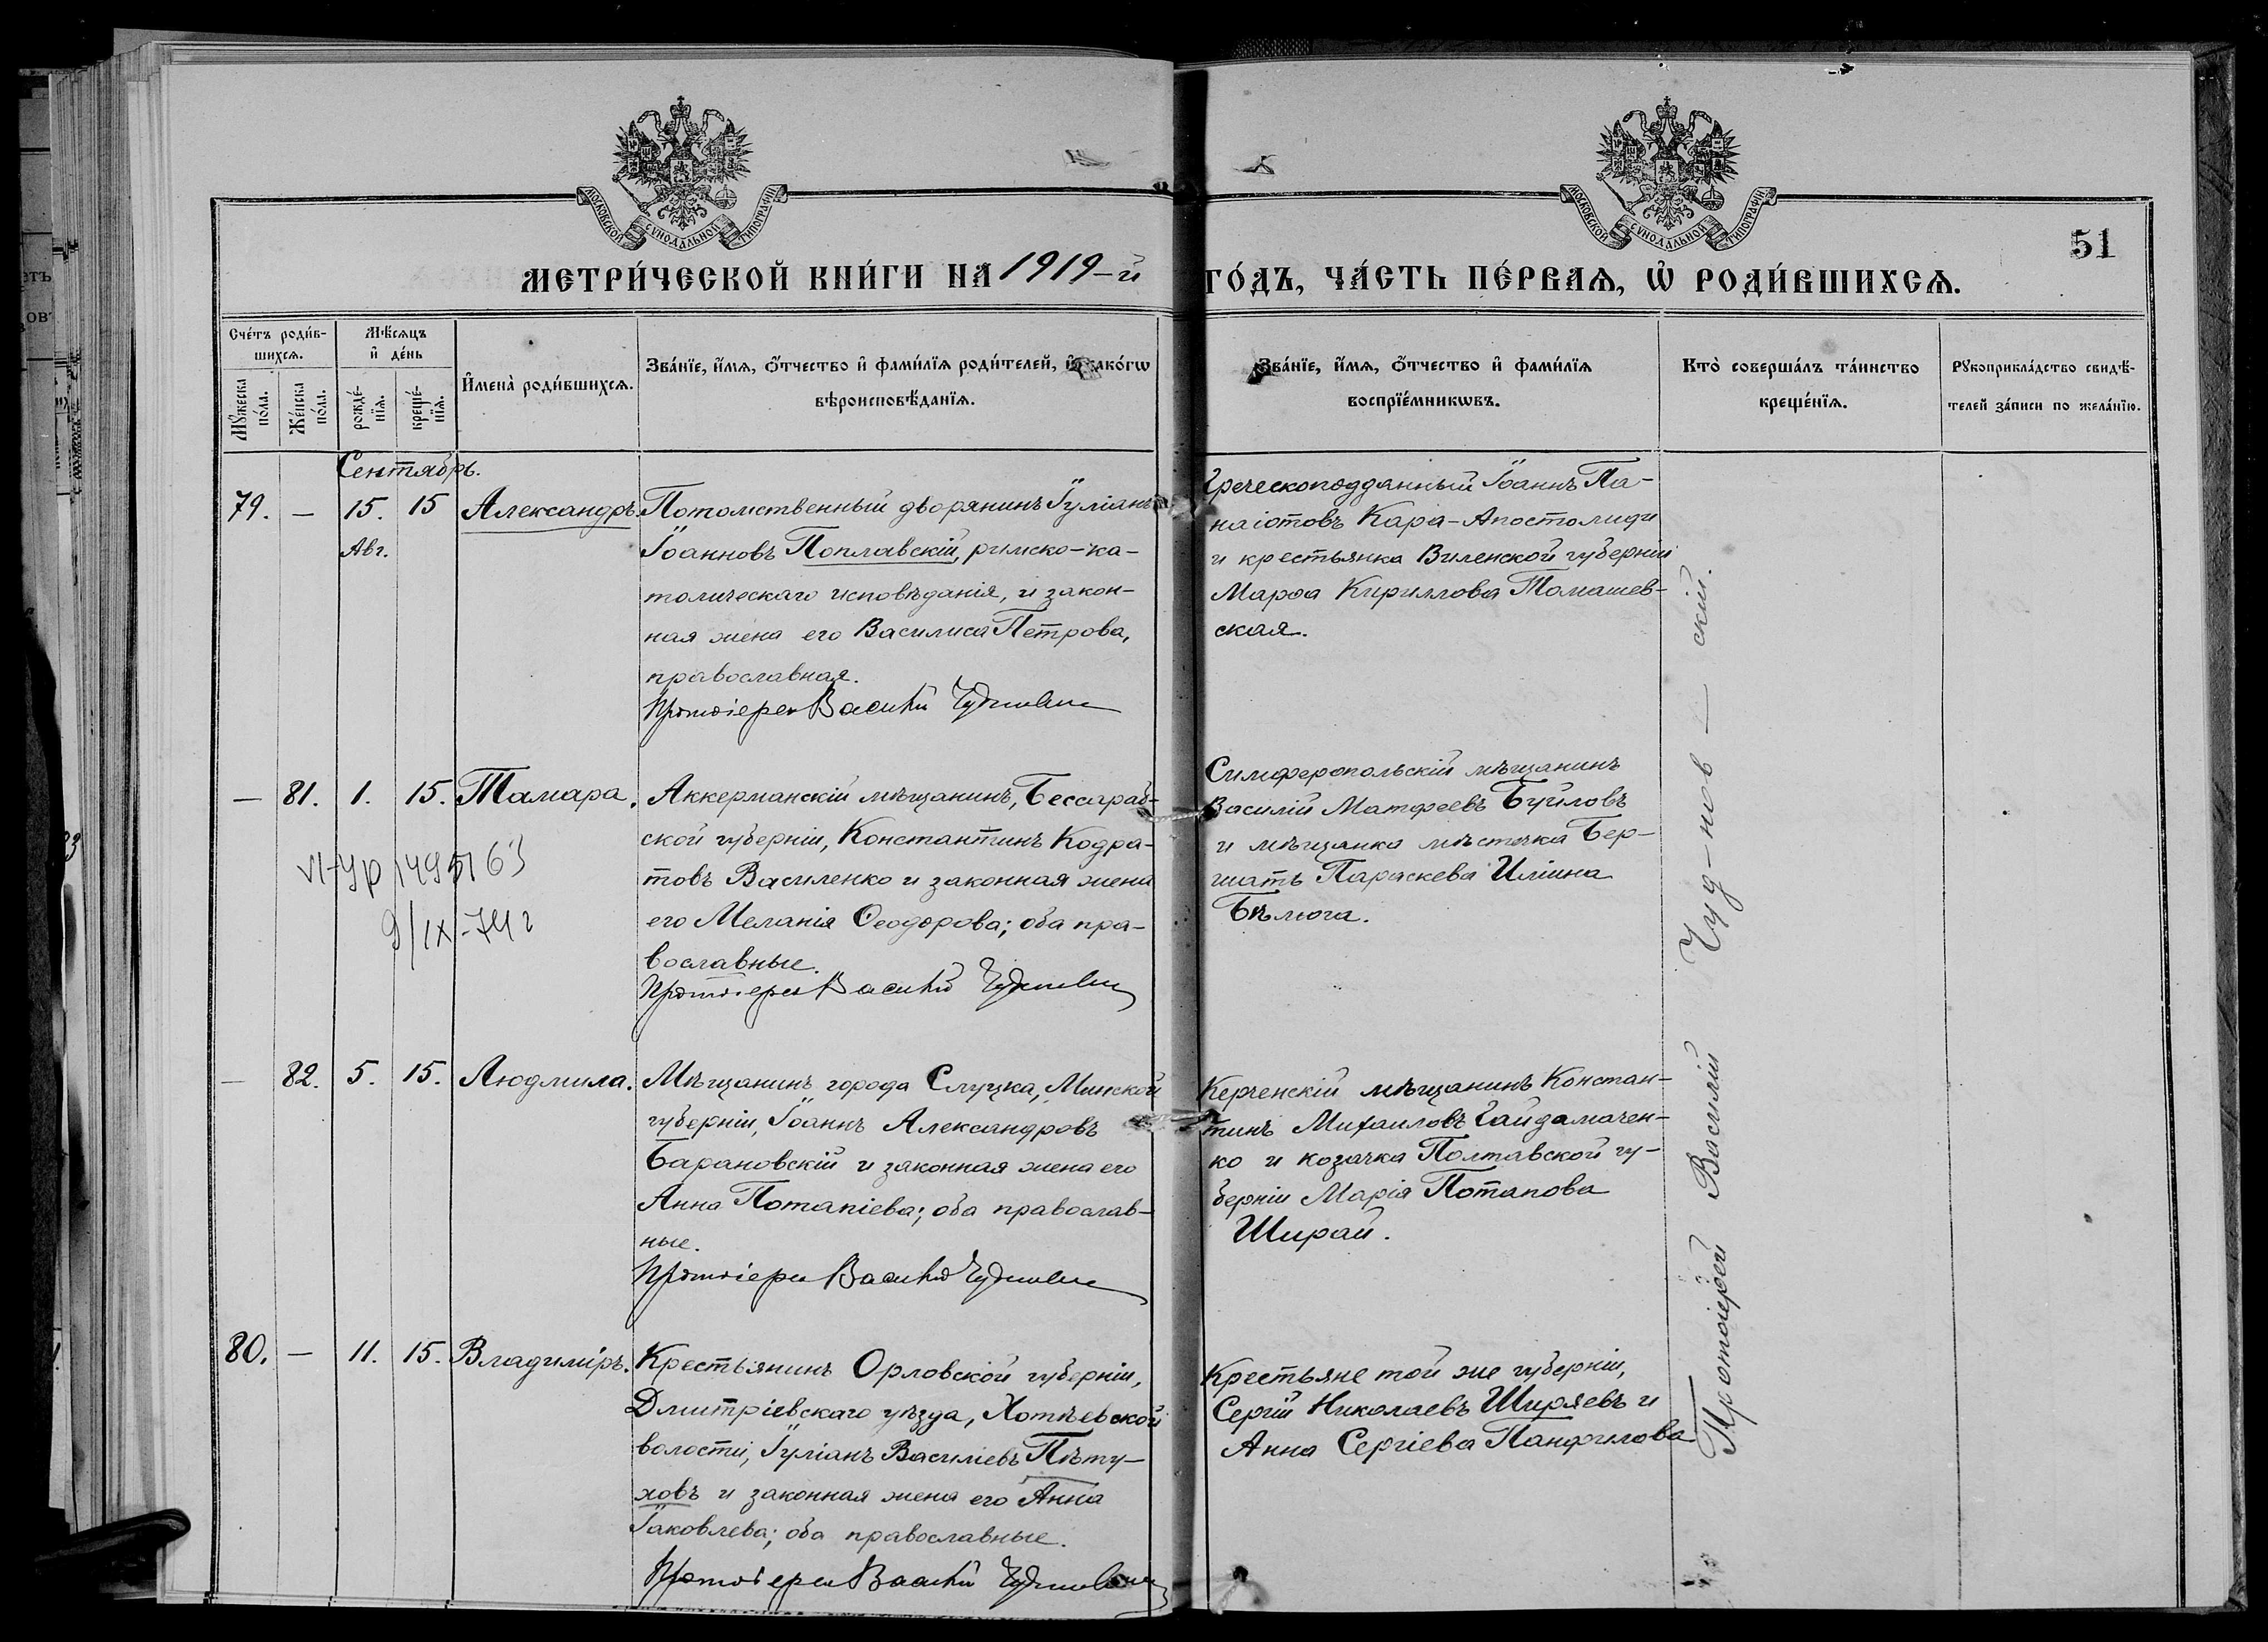 МОСКОВСКОЙ СѴНОДАЛЬНОЙ ТИПОГРАФІИ
МОСКОВСКОЙ СѴНОДАЛЬНОЙ ТИПОГРАФІИ
51
МЕТРИ́ЧЕСКОЙ КНИ́ГИ НА 1919-й
ГО́ДЪ, ЧА́СТЬ ПЕ́РВАѦ, Ѡ҆ РОДИ́ВШИХСѦ.
Сче́тъ роди́в-
шихсѧ.
Мѣ́сѧцъ
и҆ де́нь
Мꙋ́жеска
по́ла.
Же́нска
по́ла.
рожде́-
нїѧ.
креще́-
нїѧ.
И҆мена̀ роди́вшихсѧ.
Зва́нїе, и҆́мѧ, ѻ҆́тчество и҆ фами́лїѧ роди́телей, и҆ како́гѡ
вѣроисповѣ́данїѧ.
Зва́нїе, и҆́мѧ, ѻ҆́тчество и҆ фами́лїѧ
воспрїе́мникѡвъ.
Кто̀ соверша́лъ та́инство
креще́нїѧ.
Рꙋкоприкла́дство свидѣ́-
телей за́писи по жела́нїю.
Сентябрь.
79. — 15. 15 Александръ. Потомственный дворянинъ Іуліанъ
Авг.
Іоанновъ Поплавскій, римско-ка-
толическаго исповѣданія, и закон-
ная жена его Василиса Петрова,
православная.
Протоіерей Василій Чудновскій
Греческоподданный Іоаннъ Па-
наіотовъ Кара-Апостолиди
и крестьянка Виленской губерніи
Марѳа Кириллова Томашев-
ская.
— 81. 1. 15. Тамара. Аккерманскій мѣщанинъ, Бессараб-
ской губерніи, Константинъ Кодра-
товъ Василенко и законная жена
его Меланія Ѳеодорова; оба пра-
вославные.
Протоіерей Василій Чудновскій
VI-УР 149516
9/IX-74 г
Симферопольскій мѣщанинъ
Василій Матфеевъ Буйловъ
и мѣщанка мѣстечка Бер-
шать Параскева Иліина
Бѣлюга.
— 82. 5. 15. Людмила. Мѣщанинъ города Слуцка, Минской
губерніи, Іоаннъ Александровъ
Барановскій и законная жена его
Анна Потапіева; оба православ-
ные.
Протоіерей Василій Чудновскій
Керченскій мѣщанинъ Констан-
тинъ Михаиловъ Гайдамачен-
ко и козачка Полтавской гу-
берніи Марія Потапова
Ширай.
80. — 11. 15. Владиміръ. Крестьянинъ Орловской губерніи,
Дмитріевскаго уѣзда, Хотѣевской
волости, Іуліанъ Василіевъ Пѣту-
ховъ и законная жена его Анна
Іаковлева; оба православные.
Протоіерей Василій Чудновскій
Крестьяне той же губерніи,
Сергій Николаевъ Ширяевъ и
Анна Сергіева Панфилова
Протоіерей Василій Чуд-нов-скій.